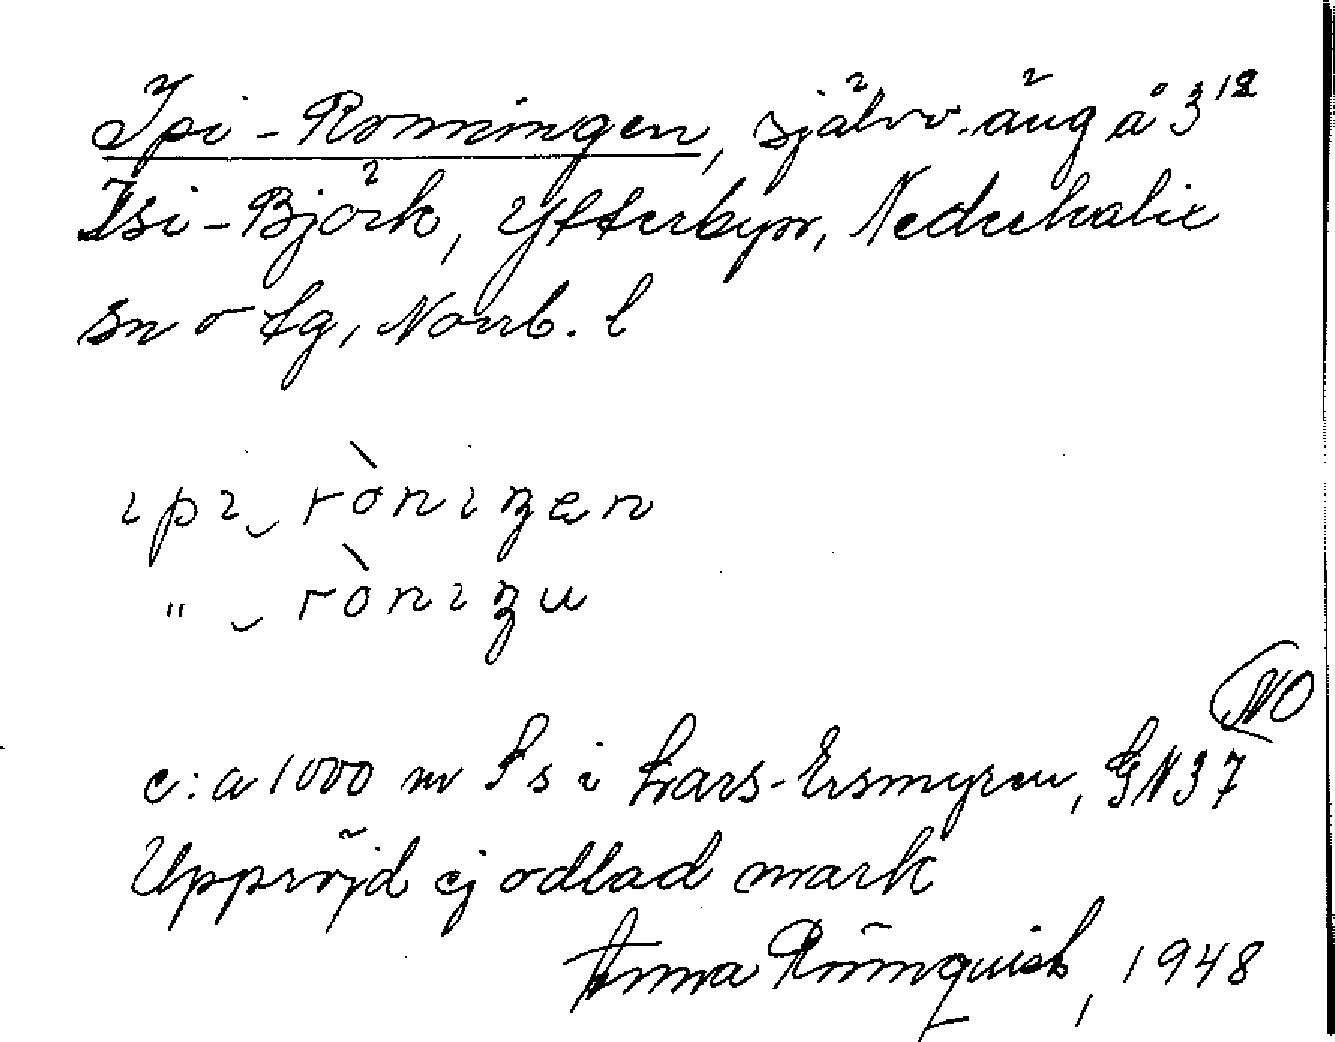 Ipi-Ronningen, självv. äng å 3¹²
Isi-Björk, Ytterbyn, Nederkalix
sn o tg, Norrb. l
ipi‿ròniŋen
"‿ròniŋu
NO
c:a 1000 m S s i Lars-Ersmyren, GN37
Uppröjd ej odlad mark
Anna Rönnquist, 1948